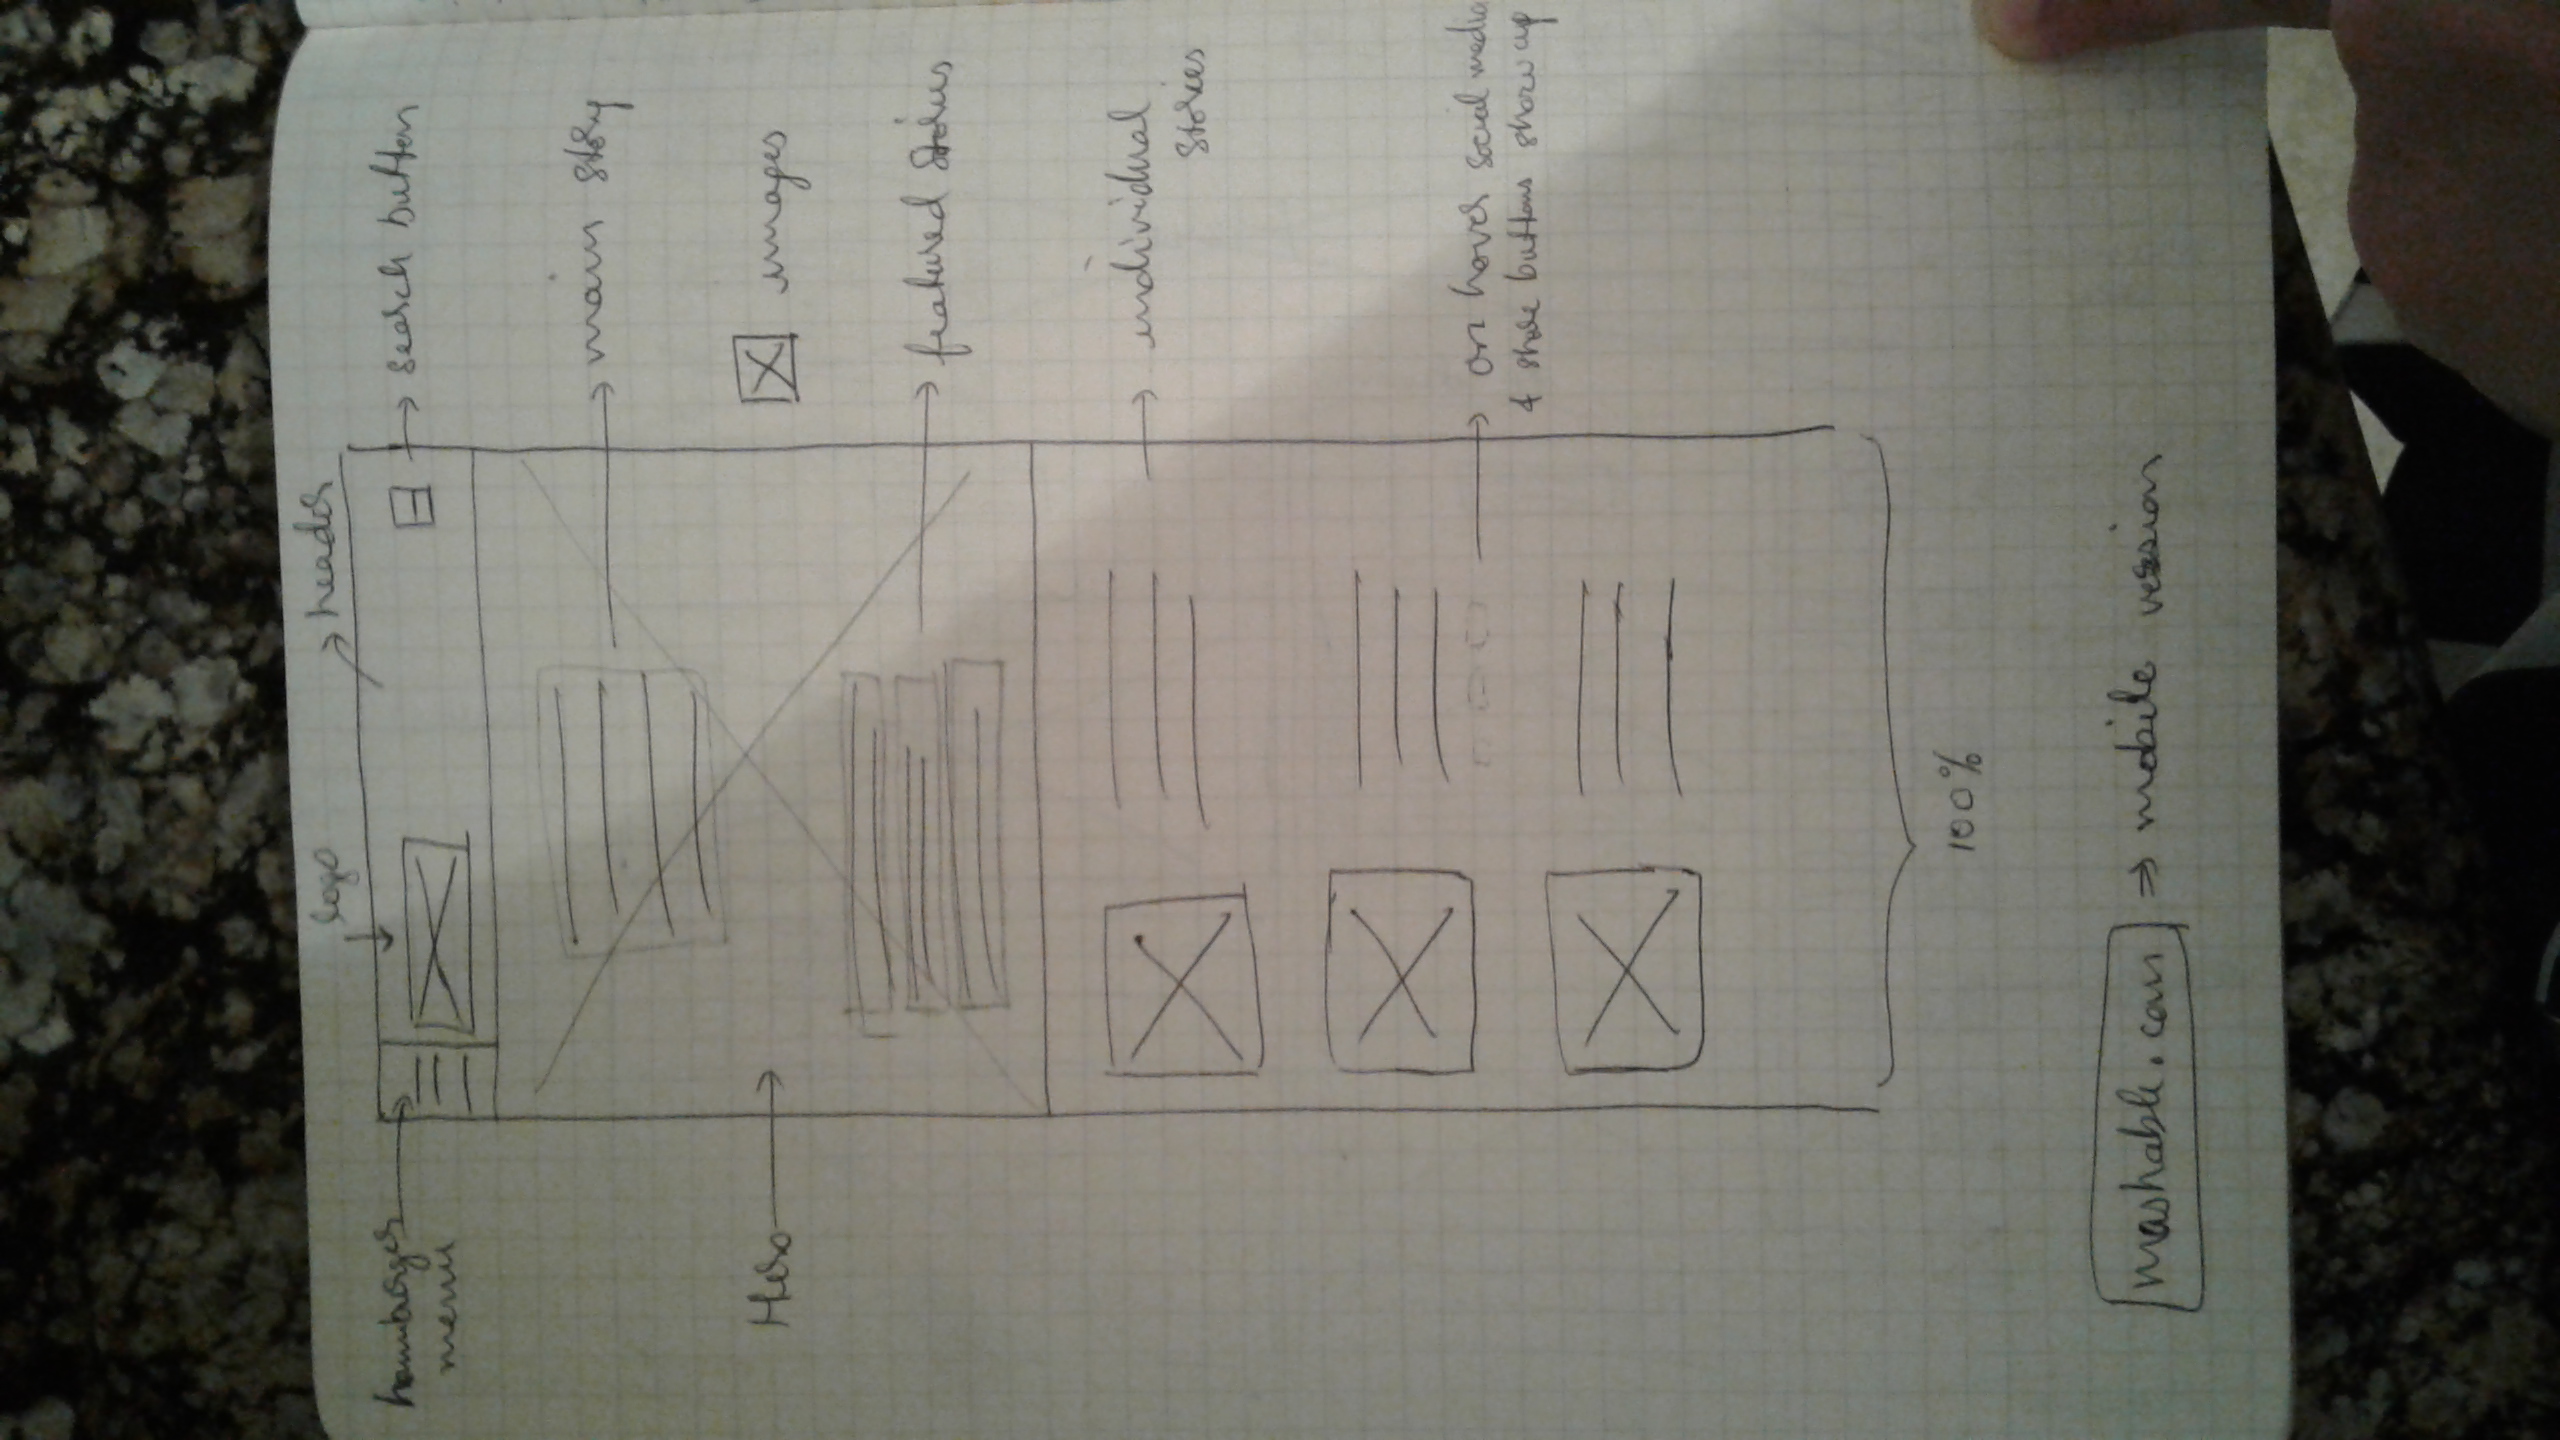 logo
header
hamburger
menu
search button
main story
Hero
images
featured stories
individual
stories
on hover social media
& share buttons show up
100%
mashable.com ⇒ mobile version